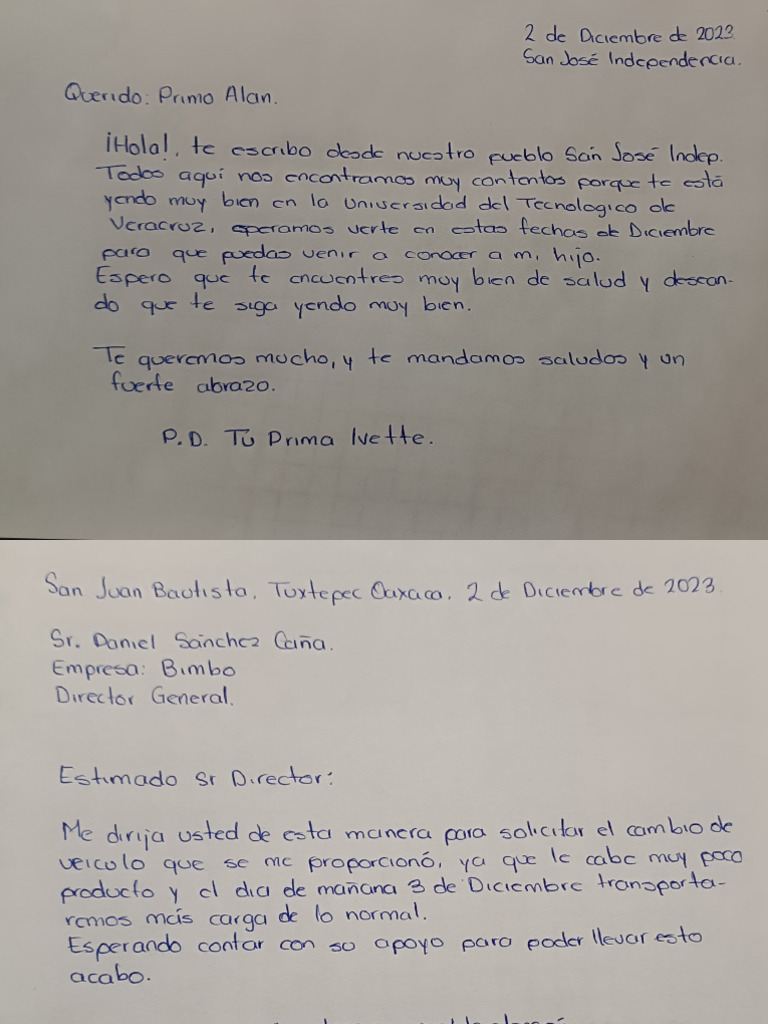 2 de Diciembre de 2023
San José Independencia.
Querido: Primo Alan.
¡Hola!, te escribo desde nuestro pueblo San José Indep.
Todos aquí nos encontramos muy contentos porque te está
yendo muy bien en la Universidad del Tecnologico de
Veracruz, esperamos verte en estas fechas de Diciembre
para que puedas venir a conocer a mi hijo.
Espero que te encuentres muy bien de salud y desean-
do que te siga yendo muy bien.
Te queremos mucho, y te mandamos saludos y un
fuerte abrazo.
P.D. Tú Prima Ivette.
San Juan Bautista, Tuxtepec Oaxaca, 2 de Diciembre de 2023
Sr. Daniel Sánchez Caña.
Empresa: Bimbo
Director General.
Estimado Sr Director:
Me dirija usted de esta manera para solicitar el cambio de
veiculo que se me proporcionó, ya que le cabe muy poco
producto y el dia de mañana 3 de Diciembre transporta-
remos más carga de lo normal.
Esperando contar con su apoyo para poder llevar esto
acabo.